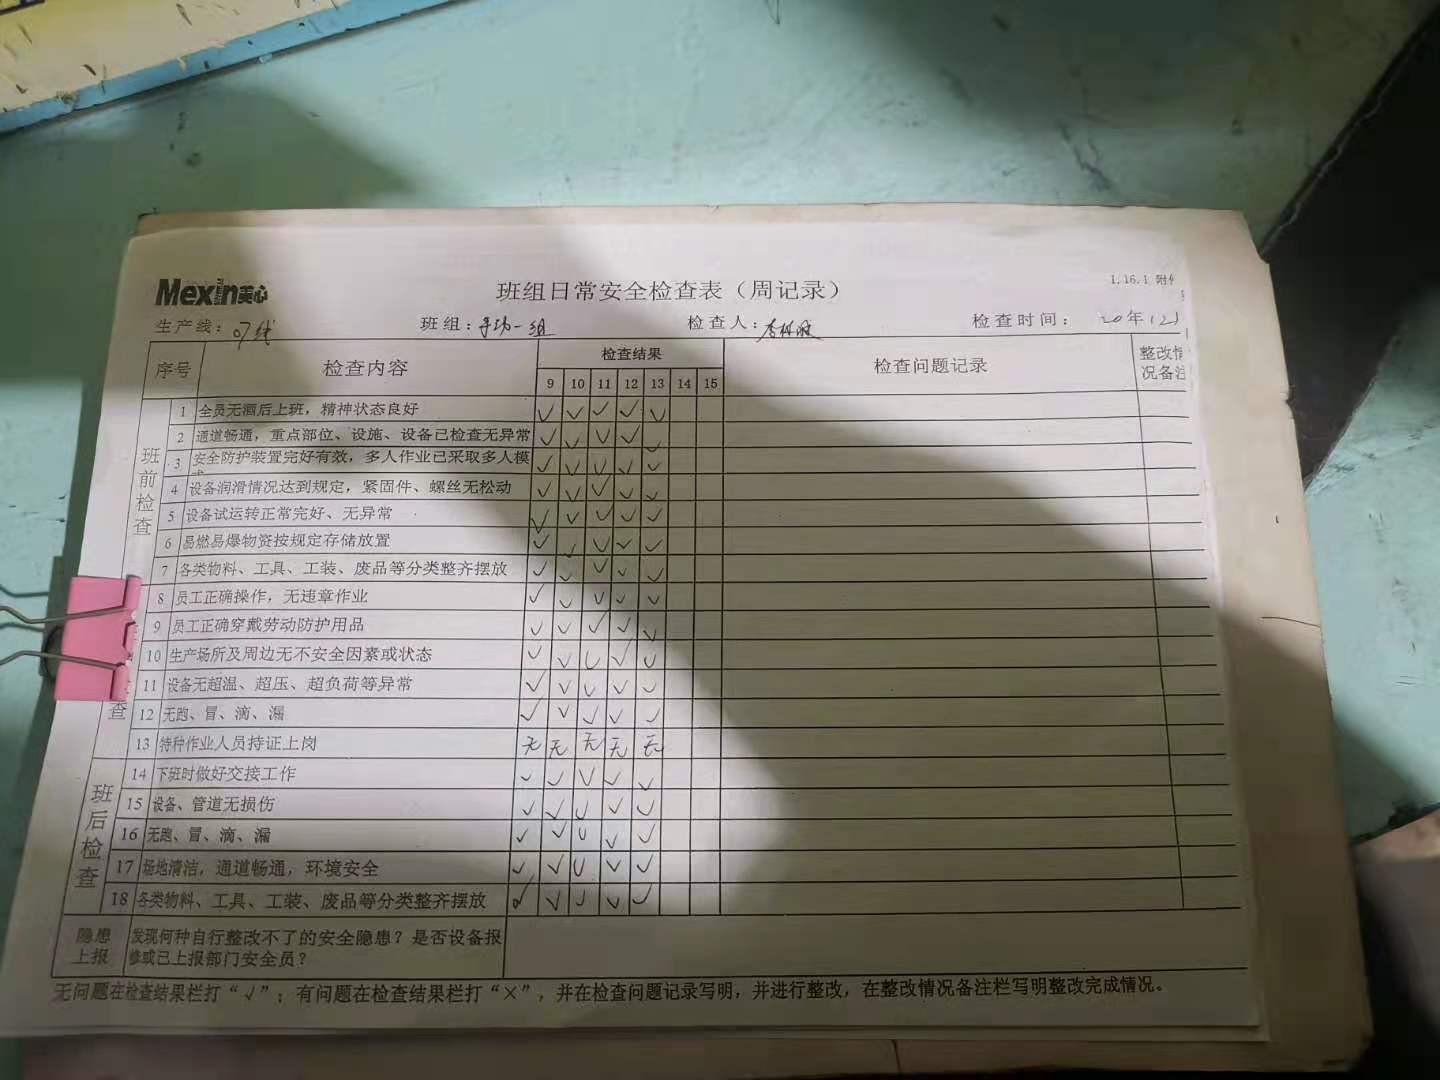 Mexin美心
班组日常安全检查表（周记录）
1.16.1 附
生产线：07线 班组： 一组 检查人： 检查时间：20年12
序号 检查内容 检查结果 检查问题记录 整改情
况备注
9 10 11 12 13 14 15
班前检查
1 全员无酒后上班，精神状态良好 √ √ √ √ √
2 通道畅通，重点部位、设施、设备已检查无异常 √ √ √ √ √
3 安全防护装置完好有效，多人作业已采取多人模 √ √ √ √ √
4 设备润滑情况达到规定，紧固件、螺丝无松动 √ √ √ √ √
5 设备试运转正常完好、无异常 √ √ √ √ √
6 易燃易爆物资按规定存储放置 √ √ √ √ √
7 各类物料、工具、工装、废品等分类整齐摆放 √ √ √ √ √
8 员工正确操作，无违章作业 √ √ √ √ √
9 员工正确穿戴劳动防护用品 √ √ √ √ √
10 生产场所及周边无不安全因素或状态 √ √ √ √ √
11 设备无超温、超压、超负荷等异常 √ √ √ √ √
查 12 无跑、冒、滴、漏 √ √ √ √ √
13 特种作业人员持证上岗 无 无 无 无 无
班后检查
14 下班时做好交接工作 √ √ √ √ √
15 设备、管道无损伤 √ √ √ √ √
16 无跑、冒、滴、漏 √ √ √ √ √
17 场地清洁，通道畅通，环境安全 √ √ √ √ √
18 各类物料、工具、工装、废品等分类整齐摆放 √ √ √ √ √
隐患上报 发现何种自行整改不了的安全隐患？是否设备报
修或已上报部门安全员？
无问题在检查结果栏打“√”；有问题在检查结果栏打“×”，并在检查问题记录写明，并进行整改，在整改情况备注栏写明整改完成情况。